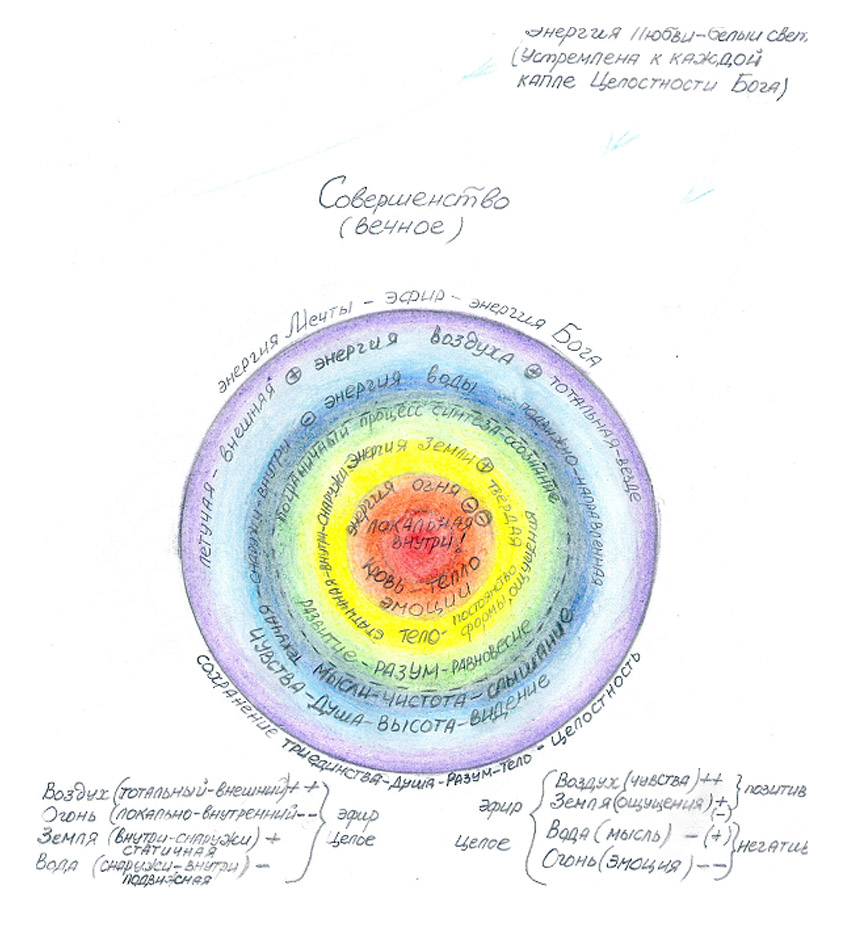 Энергия Любви-белый свет.
(Устремлена к каждой
капле Целостности Бога)
Совершенство
(вечное)
энергия Мечты - эфир - энергия Бога
летучая - внешняя ⊕ энергия воздуха ⊕ тотальная-везде
текучая - снаружи-внутри ⊖ энергия воды - подвижно-направленная
пограничный процесс синтеза-осознание
статичная-внутри-снаружи энергия Земли ⊕ твёрдая
энергия огня ⊖⊖
локальная
внутри!
кровь - тепло
эмоции
тело - постоянство
формы, ощущения
развитие - разум - равновесие
мысли-чистота - слышание
чувства - душа - высота - видение
сохранение триединства-душа-разум-тело - целостность
Воздух (тотальный-внешний)++
Огонь (локально-внутренний--
Земля (внутри-снаружи) +
статичная
Вода (снаружи-внутри) -
подвижная
эфир
Целое
эфир
Целое
Воздух (чувства) ++
Земля (ощущения) +
(-)
Вода (мысль) - (+)
Огонь (эмоция) - -
позитив
негатив